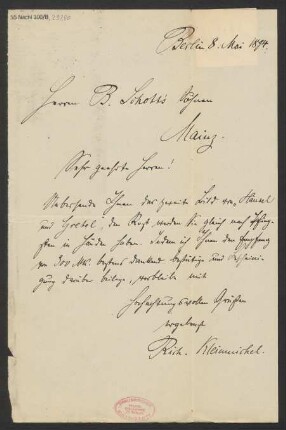 55 Nachl 100/B,
Berlin 8. Mai 1894.
Herrn B. Schott's Söhnen
Mainz.
Sehr geehrte Herrn!
Uebersende Ihnen das zweite Bild von Hänsel
und Gretel, den Rest werden Sie gleich nach Pfing-
sten in Händen haben. Indem ich Ihnen den Empfang
von 300 Mk. bestens dankend bestätige und Bescheini-
gung darüber beilege, verbleibe mit
hochachtungsvollen Grüßen
ergebenst
Rich. Kleinmichel.